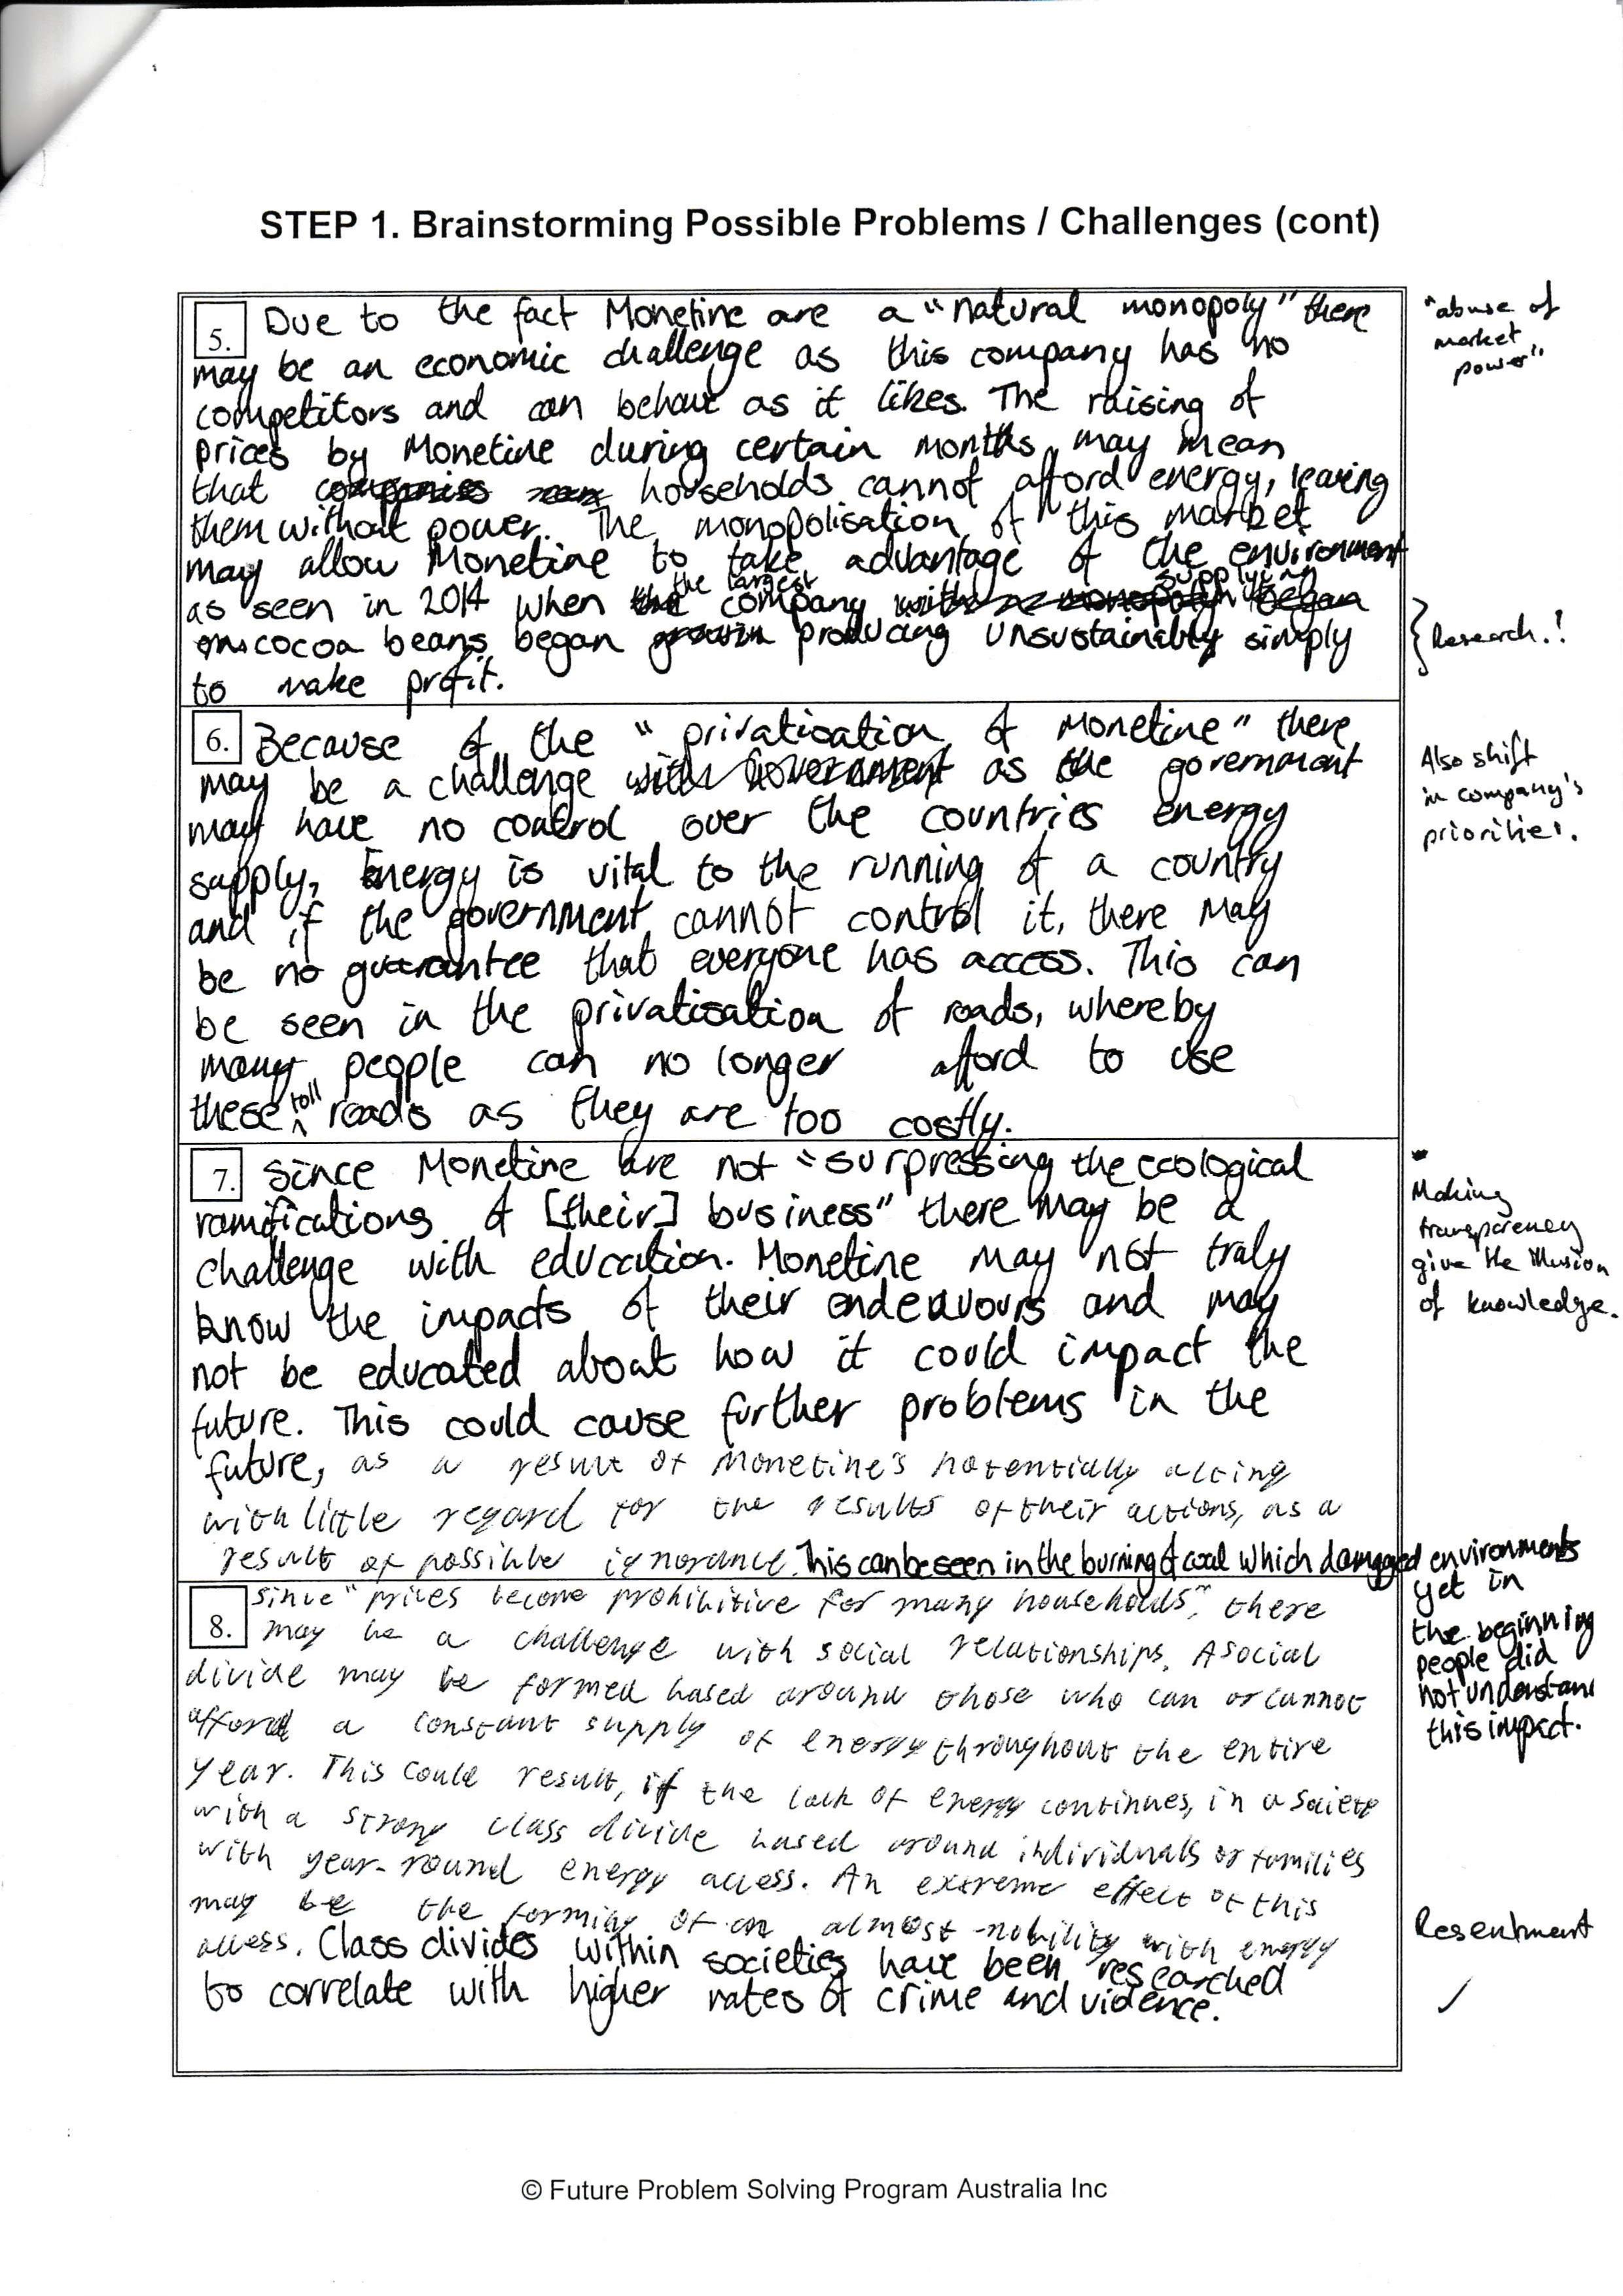 STEP 1. Brainstorming Possible Problems / Challenges (cont)
5. Due to the fact Monetine are a "natural monopoly" there
may be an economic challenge as this company has no
competitors and can behave as it likes. The raising of
prices by Monetine during certain months may mean
that households cannot afford energy, leaving
them without power. The monopolisation of this market
may allow Monetine to take advantage of the environment
as seen in 2014 when the largest company supplying
cocoa beans began producing unsustainably simply
to make profit.
"abuse of
market
power"
} Research.!
6. Because of the "privatisation of Monetine" there
may be a challenge as the government
may have no control over the countries energy
supply. Energy is vital to the running of a country
and if the government cannot control it, there may
be no guarantee that everyone has access. This can
be seen in the privatisation of roads, whereby
many people can no longer afford to use
these toll roads as they are too costly.
Also shift
in company's
priorities.
7. Since Monetine are not "surpressing the ecological
ramifications of [their] business" there may be a
challenge with education. Monetine may not truly
know the impacts of their endeavours and may
not be educated about how it could impact the
future. This could cause further problems in the
future, as a result of Monetine's potentially acting
with little regard for the results of their actions, as a
result of possible ignorance. This can be seen in the burning of coal which damaged environments
yet in
the beginning
people did
not understand
this impact.
Making
transparency
give the illusion
of knowledge.
8. Since "prices become prohibitive for many households", there
may be a challenge with social relationships. A social
divide may be formed based around those who can or cannot
afford a constant supply of energy throughout the entire
year. This could result, if the lack of energy continues, in a society
with a strong class divide based around individuals or families
with year-round energy access. An extreme effect of this
may be the forming of an almost-nobility with energy
access. Class divides within societies have been researched
to correlate with higher rates of crime and violence.
Resentment
✓
© Future Problem Solving Program Australia Inc